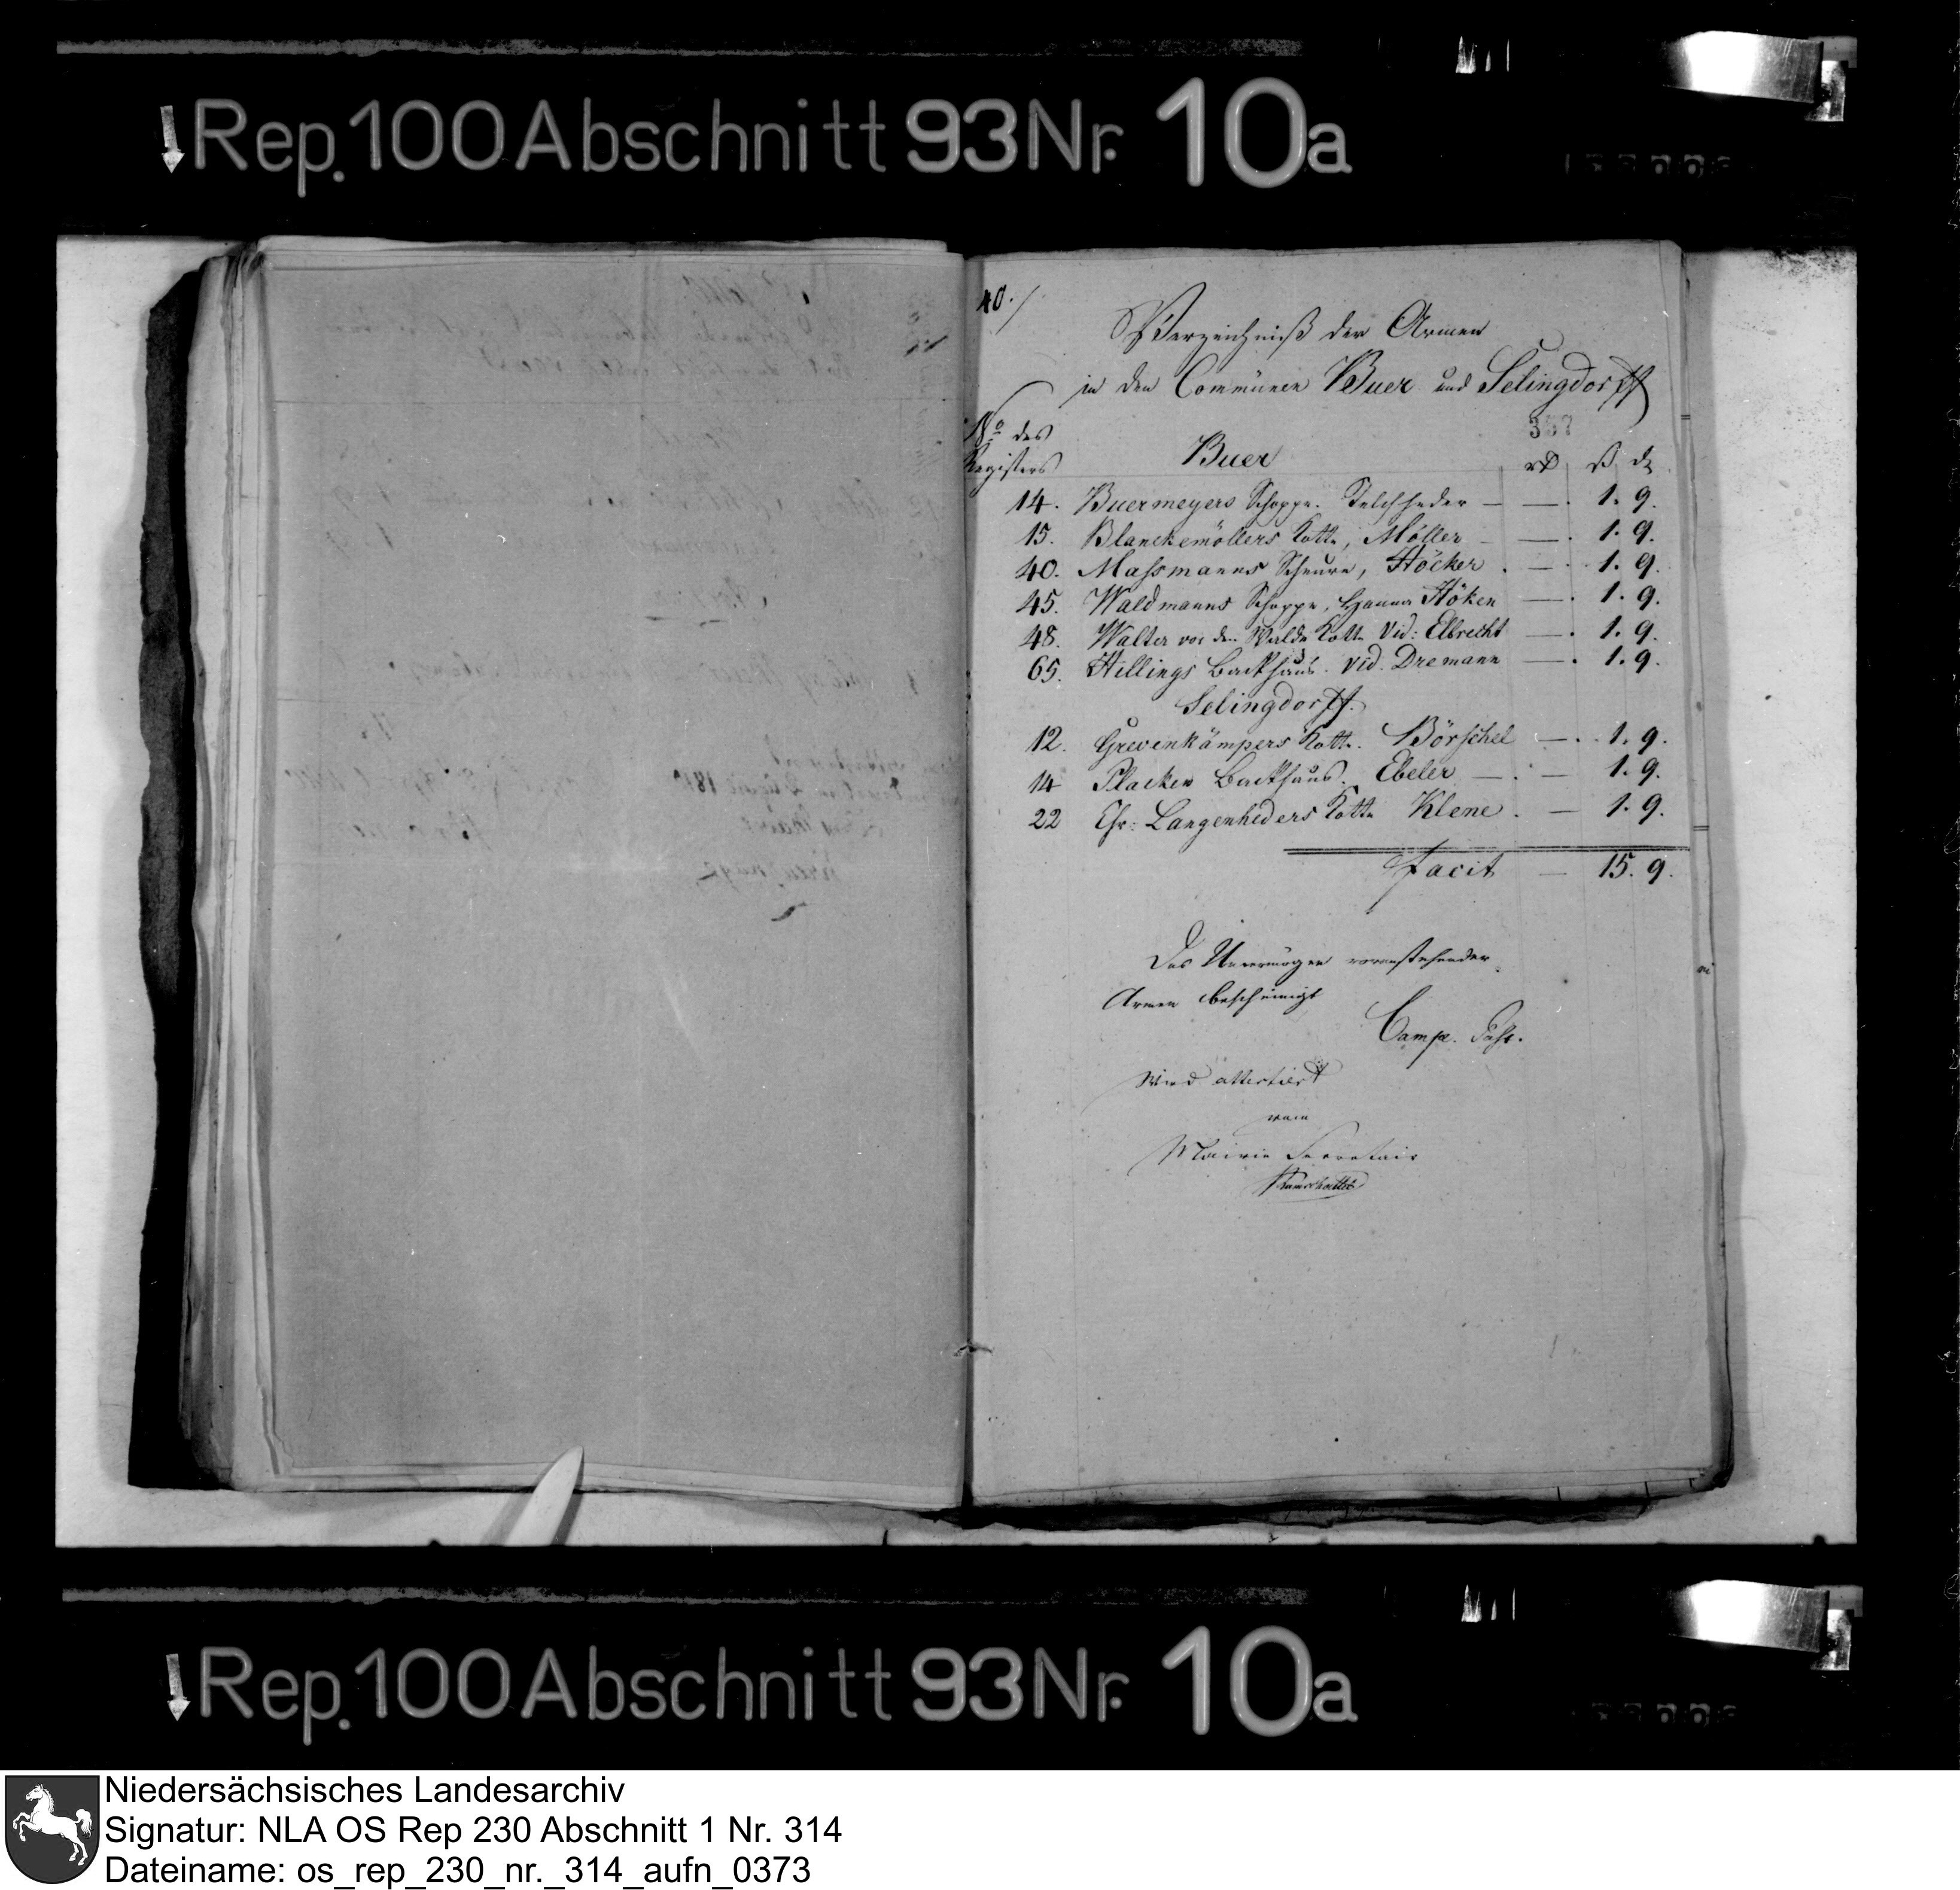 Rep. 100 Abschnitt 93 Nr. 10a
40./
Verzeichniß der Armen
in den Communen Buer und Selingdorff
357
No des
Registers
Buer
rt ß d
14. Buermeyers Schoppe. — — 1. 9.
15. Blanckemöllers Kotte, Möller — — 1. 9.
40. Massmanns Scheure, Höcker . — 1. 9.
45. Waldmanns Schoppe, Hanna Höken — 1. 9.
48. Walter vor dem Walde Kotte Vid: Elbrecht — 1. 9.
65. Hillings Backhaus. Vid. Dremann — 1. 9.
Selingdorff.
12. Grevenkämpers Kotte. Börschel — 1. 9.
14 Placken Backhaus. Ebeler — — 1. 9.
22 Ehr: Langenheders Kotte Klene . — 1. 9.
Facit — 15. 9.
Das Unvermögen vorenstehender
Armen bescheinigt
Camp. Past.
Wird attestiert
vom
Mairie Secretair
Rep. 100 Abschnitt 93 Nr. 10a
Niedersächsisches Landesarchiv
Signatur: NLA OS Rep 230 Abschnitt 1 Nr. 314
Dateiname: os_rep_230_nr._314_aufn_0373